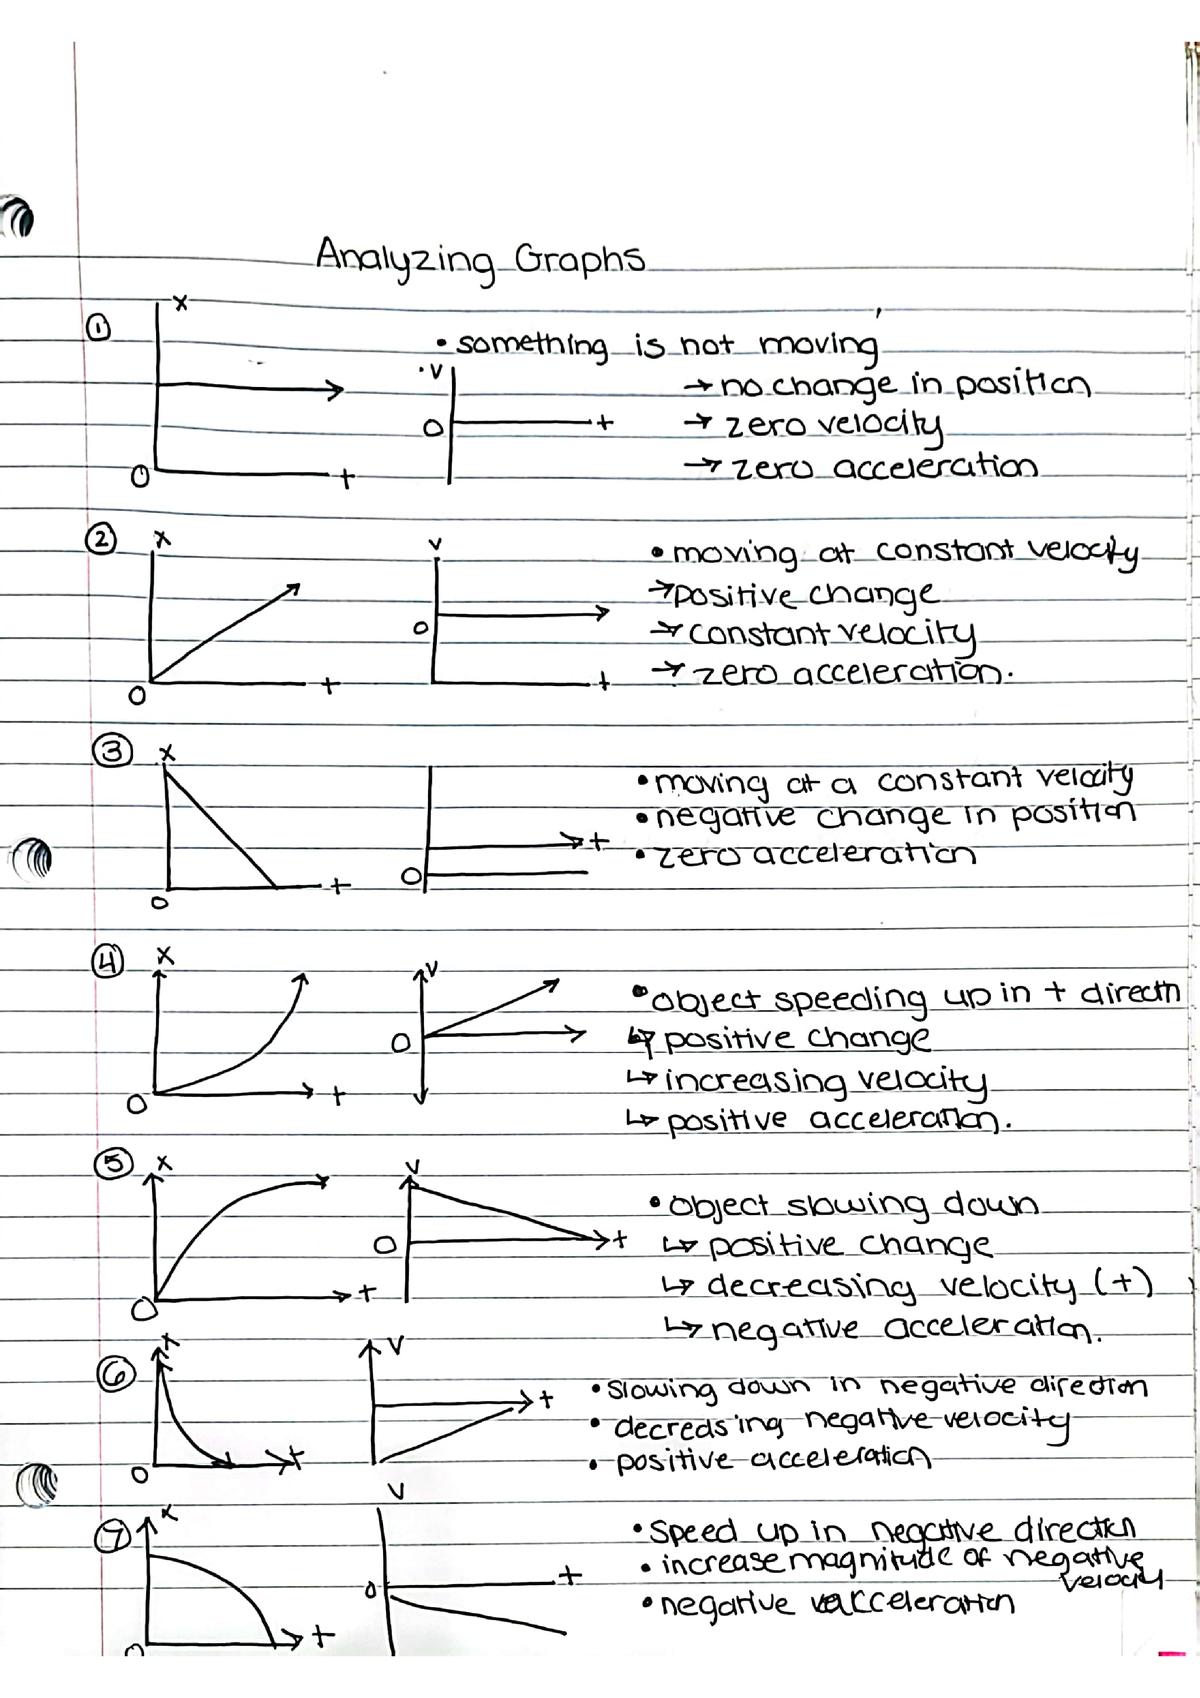 Analyzing Graphs
① x
• something is not moving
v → no change in position
0 + → zero velocity
0 + → zero acceleration
② x v • moving at constant velocity
→ positive change
0 → constant velocity
0 + + → zero acceleration.
③ x • moving at a constant velocity
• negative change in position
+ • zero acceleration
0 + 0
④ x v • object speeding up in + directn
0 ↳ positive change
↳ increasing velocity
0 + ↳ positive acceleration.
⑤ x v • object slowing down
0 + ↳ positive change
0 + ↳ decreasing velocity (+)
↳ negative acceleration.
⑥ x v
+ • slowing down in negative direction
• decreasing negative velocity
0 + • positive acceleration
⑦ x v • speed up in negative direction
0 + • increase magnitude of negative
velocity
• negative acceleration
0 +